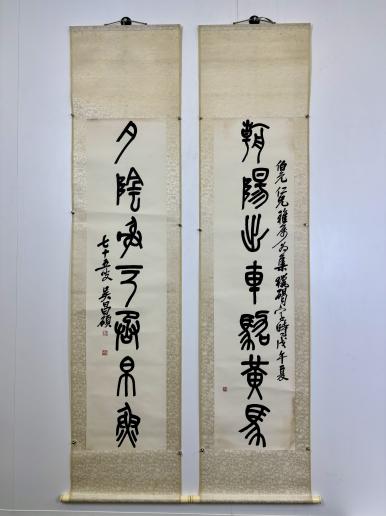 朝陽出車駱黃馬
伯仁兄雅屬為集獵碣字時戊午夏
夕陰帛魚
七十五叟吳昌碩